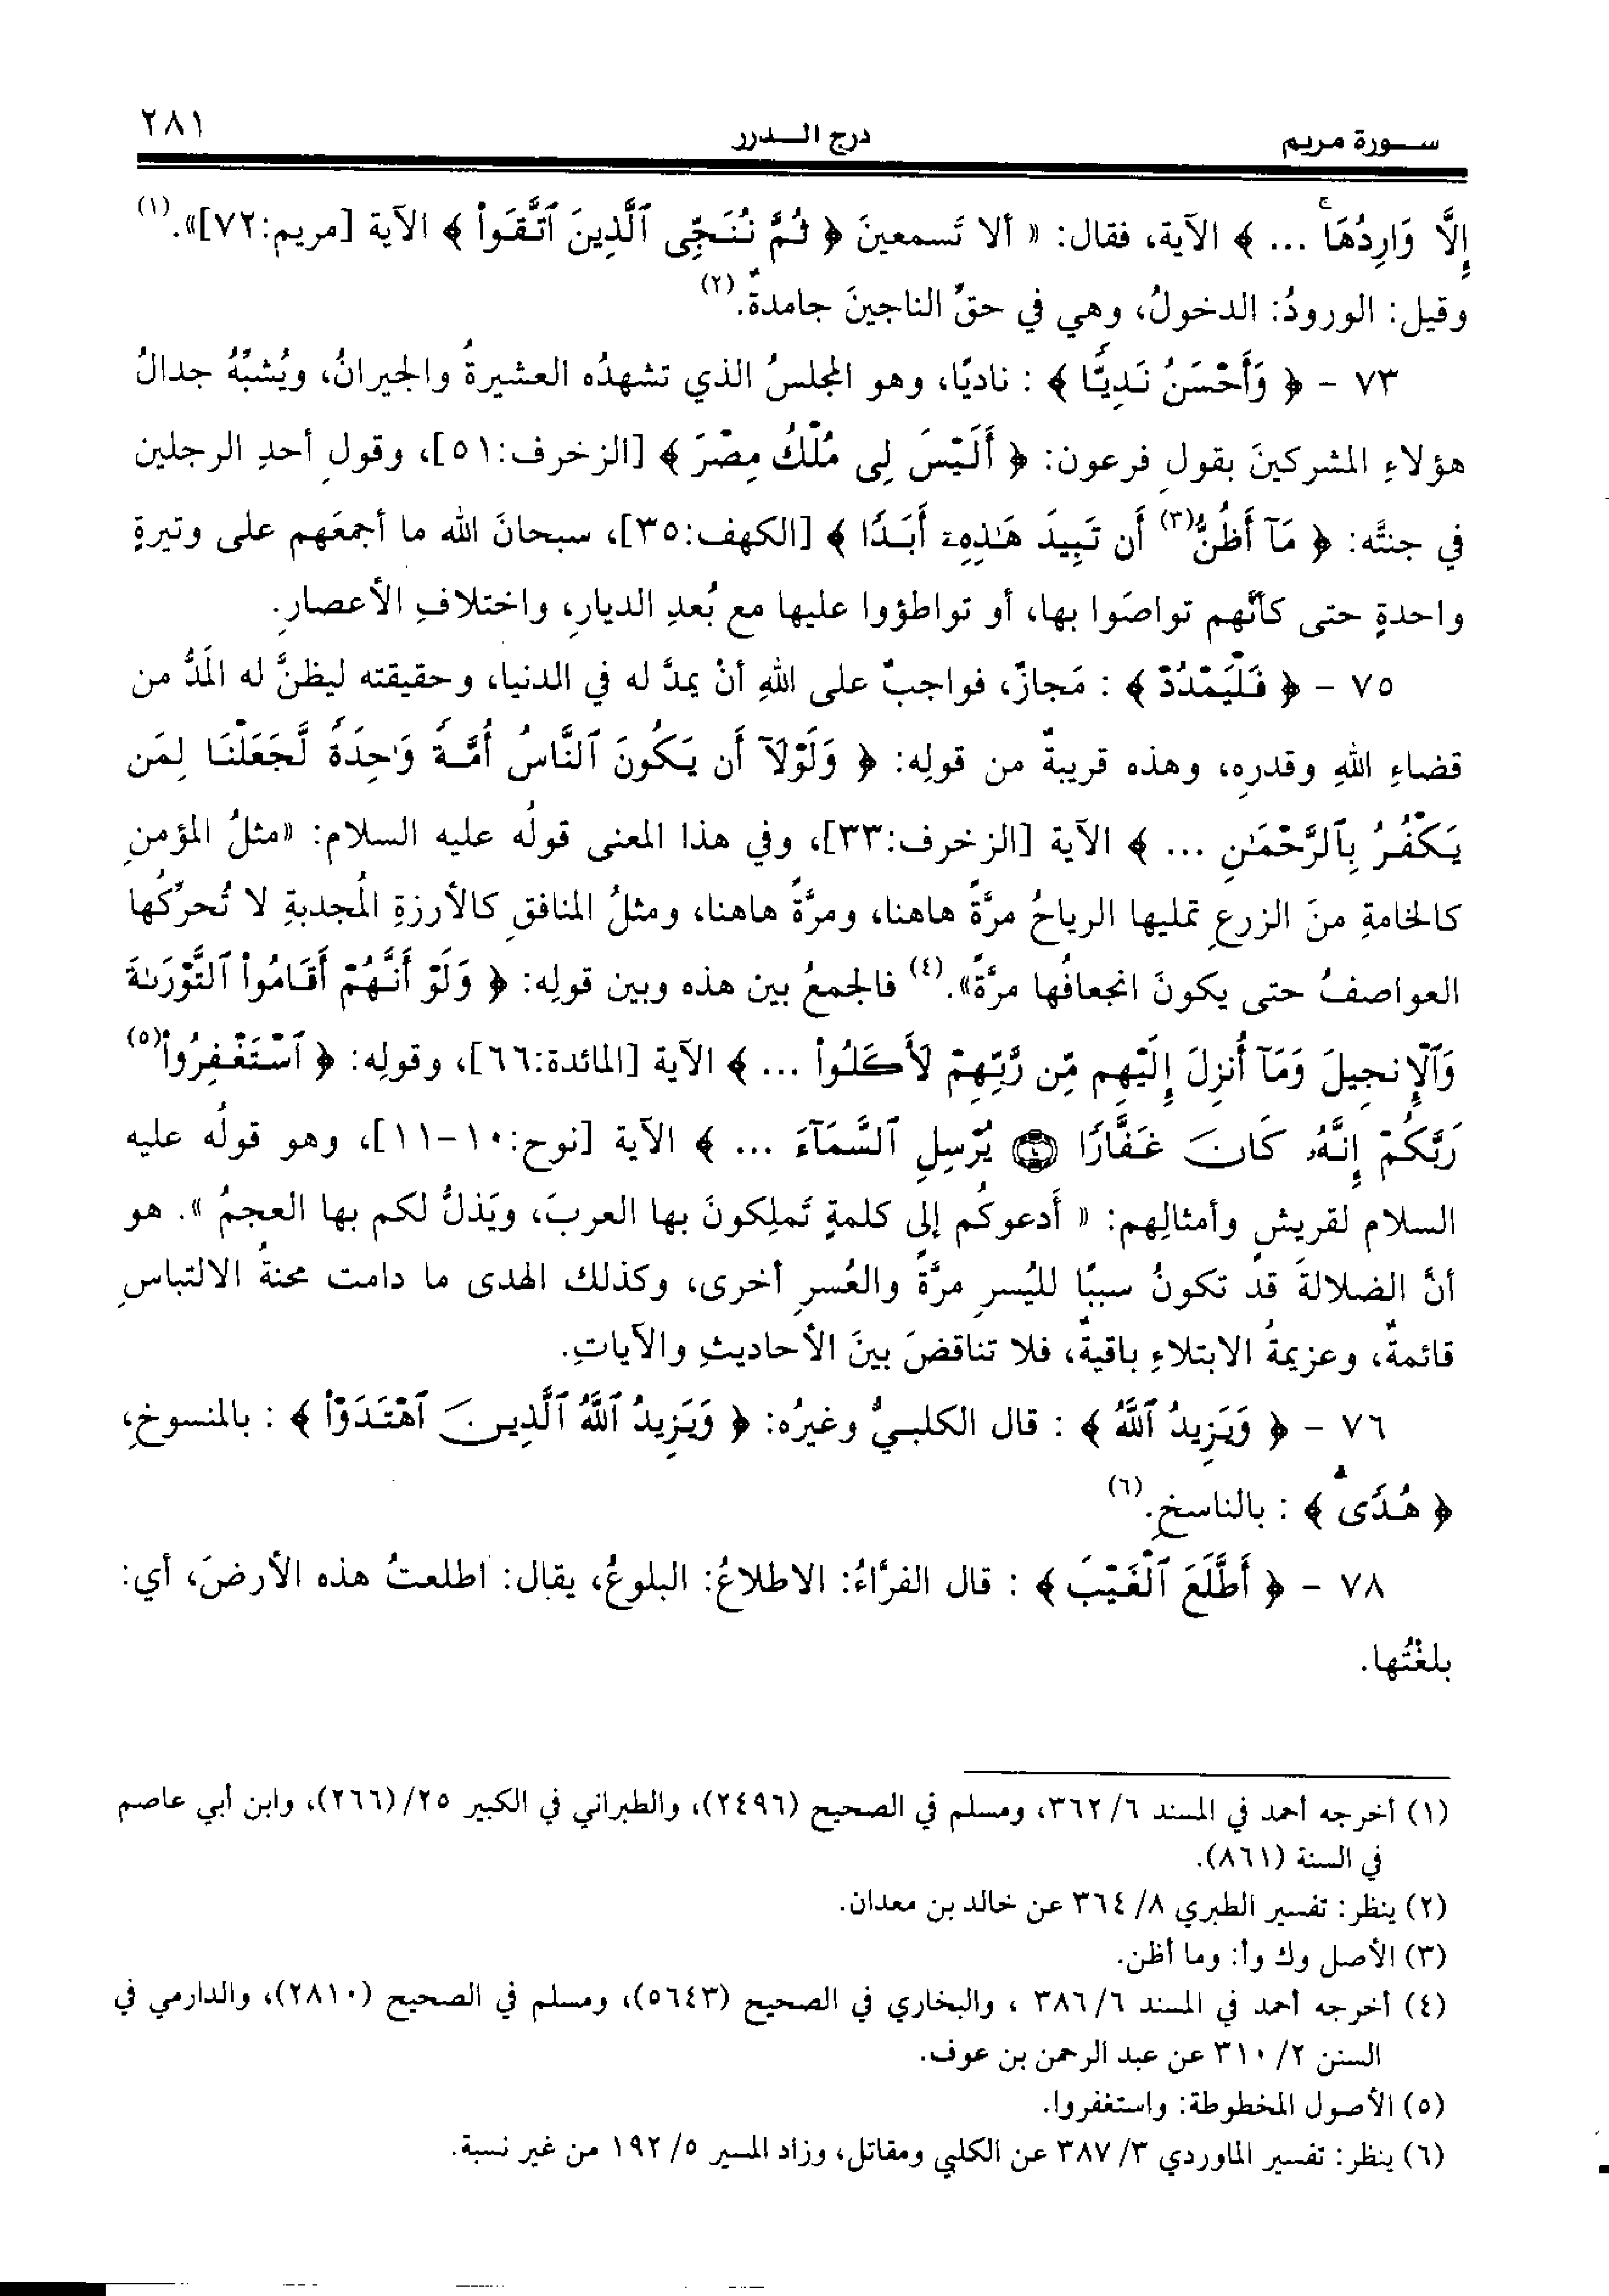 سـورة مريم درج الـدرر ٢٨١
إِلَّا وَارِدُهَا ... ﴾ الآية، فقال: « ألا تَسمعينَ ﴿ ثُمَّ نُنَجِّى ٱلَّذِينَ ٱتَّقَوا۟ ﴾ الآية [مريم:٧٢]».(١)
وقيل: الورودُ: الدخولُ، وهي في حقِّ الناجينَ جامدةٌ.(٢)
٧٣ - ﴿ وَأَحْسَنُ نَدِيًّا ﴾ : ناديًا، وهو المجلسُ الذي تشهدُه العشيرةُ والجيرانُ، ويُشبِّهُ جدالُ
هؤلاءِ المشركينَ بقولِ فرعون: ﴿ أَلَيْسَ لِى مُلْكُ مِصْرَ ﴾ [الزخرف:٥١]، وقولِ أحدِ الرجلين
في جنتَّه: ﴿ مَآ أَظُنُّ(٣) أَن تَبِيدَ هَـٰذِهِۦٓ أَبَدًا ﴾ [الكهف:٣٥]، سبحانَ الله ما أجمعَهم على وتيرةٍ
واحدةٍ حتى كأنَّهم تواصَوا بها، أو تواطؤوا عليها مع بُعدِ الديارِ، واختلافِ الأعصارِ.
٧٥ - ﴿ فَلْيَمْدُدْ ﴾ : مَجازٌ، فواجبٌ على اللهِ أنْ يمدَّ له في الدنيا، وحقيقته ليظنَّ له المَدُّ من
قضاءِ اللهِ وقدرِه، وهذه قريبةٌ من قولِه: ﴿ وَلَوْلَآ أَن يَكُونَ ٱلنَّاسُ أُمَّةً وَٰحِدَةً لَّجَعَلْنَا لِمَن
يَكْفُرُ بِٱلرَّحْمَـٰنِ ... ﴾ الآية [الزخرف:٣٣]، وفي هذا المعنى قولُه عليه السلام: «مثلُ المؤمنِ
كالخامةِ منَ الزرعِ تمليها الرياحُ مرَّةً هاهنا، ومرَّةً هاهنا، ومثلُ المنافقِ كالأرزةِ المُجدبةِ لا تُحرِّكُها
العواصفُ حتى يكونَ انجعافُها مرَّةً».(٤) فالجمعُ بين هذه وبين قولِه: ﴿ وَلَوْ أَنَّهُمْ أَقَامُوا۟ ٱلتَّوْرَىٰةَ
وَٱلْإِنجِيلَ وَمَآ أُنزِلَ إِلَيْهِم مِّن رَّبِّهِمْ لَأَكَلُوا۟ ... ﴾ الآية [المائدة:٦٦]، وقولِه: ﴿ ٱسْتَغْفِرُوا۟(٥)
رَبَّكُمْ إِنَّهُۥ كَانَ غَفَّارًا ۝١٠ يُرْسِلِ ٱلسَّمَآءَ ... ﴾ الآية [نوح:١٠-١١]، وهو قولُه عليه
السلام لقريشٍ وأمثالِهم: « أَدعوكُم إلى كلمةٍ تَملِكونَ بها العربَ، ويَذلُّ لكم بها العجمُ ». هو
أنَّ الضلالةَ قد تكونُ سببًا لليُسرِ مرَّةً والعُسرِ أخرى، وكذلك الهدى ما دامت محنةُ الالتباسِ
قائمةٌ، وعزيمةُ الابتلاءِ باقيةٌ، فلا تناقضَ بينَ الأحاديثِ والآياتِ.
٧٦ - ﴿ وَيَزِيدُ ٱللَّهُ ﴾ : قال الكلبـيُّ وغيرُه: ﴿ وَيَزِيدُ ٱللَّهُ ٱلَّذِينَ ٱهْتَدَوْا۟ ﴾ : بالمنسوخِ،
﴿ هُدًى ﴾ : بالناسخِ.(٦)
٧٨ - ﴿ أَطَّلَعَ ٱلْغَيْبَ ﴾ : قال الفرَّاءُ: الاطلاعُ: البلوغُ، يقال: اطلعتُ هذه الأرضَ، أي:
بلغْتُها.
(١) أخرجه أحمد في المسند ٦/ ٣٦٢، ومسلم في الصحيح (٢٤٩٦)، والطبراني في الكبير ٢٥/ (٢٦٦)، وابن أبي عاصم
في السنة (٨٦١).
(٢) ينظر: تفسير الطبري ٨/ ٣٦٤ عن خالد بن معدان.
(٣) الأصل وك وأ: وما أظن.
(٤) أخرجه أحمد في المسند ٦/ ٣٨٦ ، والبخاري في الصحيح (٥٦٤٣)، ومسلم في الصحيح (٢٨١٠)، والدارمي في
السنن ٢/ ٣١٠ عن عبد الرحمن بن عوف.
(٥) الأصول المخطوطة: واستغفروا.
(٦) ينظر: تفسير الماوردي ٣/ ٣٨٧ عن الكلبي ومقاتل، وزاد المسير ٥/ ١٩٢ من غير نسبة.